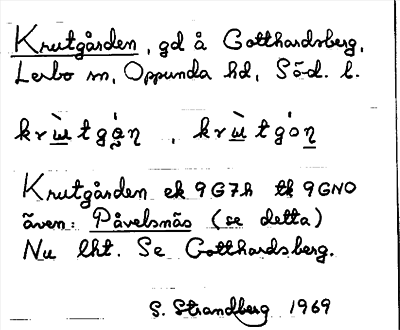 Krutgården, gd å Gotthardsberg,
Lerbo sn, Oppunda hd, Söd. l.
krùtgạ́ṇ, krùtgóṇ
Krutgården ek 9G7h tk 9GNO
även: Påvelsnäs (se detta)
Nu lht. Se Gotthardsberg.
S. Strandberg 1969